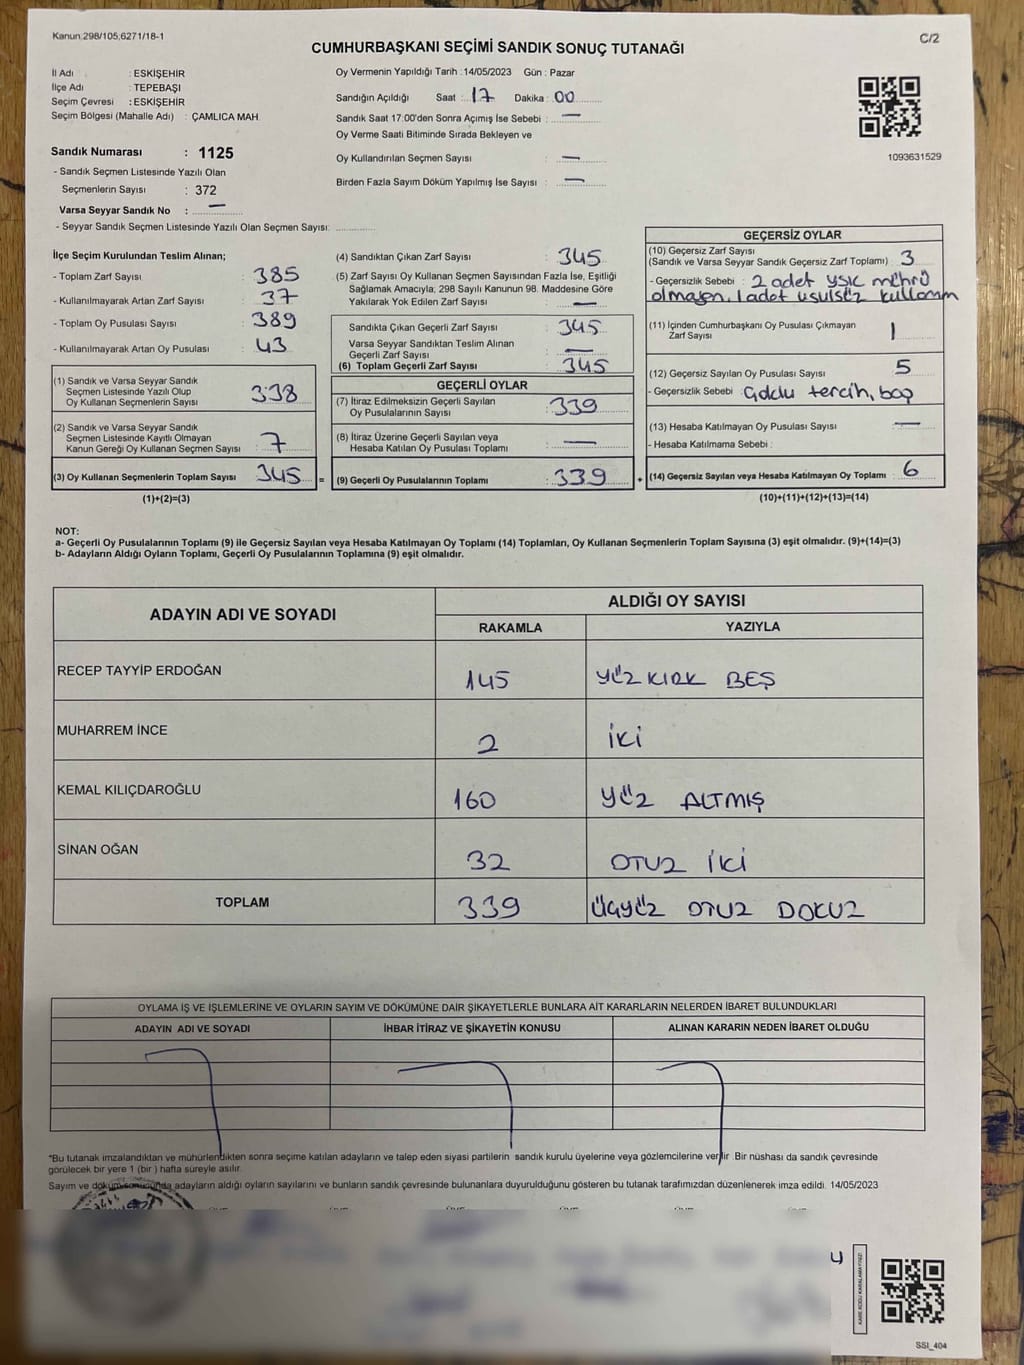 Kanun:298/105;6271/18-1
C/2
CUMHURBAŞKANI SEÇİMİ SANDIK SONUÇ TUTANAĞI
İl Adı : ESKİŞEHİR
İlçe Adı : TEPEBAŞI
Seçim Çevresi : ESKİŞEHİR
Seçim Bölgesi (Mahalle Adı) : ÇAMLICA MAH.
Sandık Numarası : 1125
- Sandık Seçmen Listesinde Yazılı Olan
Seçmenlerin Sayısı : 372
Varsa Seyyar Sandık No : —
- Seyyar Sandık Seçmen Listesinde Yazılı Olan Seçmen Sayısı:
Oy Vermenin Yapıldığı Tarih :14/05/2023 Gün : Pazar
Sandığın Açıldığı Saat : 17 Dakika : 00
Sandık Saat 17:00'den Sonra Açımış İse Sebebi : —
Oy Verme Saati Bitiminde Sırada Bekleyen ve
Oy Kullandırılan Seçmen Sayısı : —
Birden Fazla Sayım Döküm Yapılmış İse Sayısı : —
1093631529
İlçe Seçim Kurulundan Teslim Alınan;
- Toplam Zarf Sayısı : 385
- Kullanılmayarak Artan Zarf Sayısı : 37
- Toplam Oy Pusulası Sayısı : 389
- Kullanılmayarak Artan Oy Pusulası : 43
(1) Sandık ve Varsa Seyyar Sandık
Seçmen Listesinde Yazılı Olup
Oy Kullanan Seçmenlerin Sayısı : 338
(2) Sandık ve Varsa Seyyar Sandık
Seçmen Listesinde Kayıtlı Olmayan
Kanun Gereği Oy Kullanan Seçmen Sayısı : 7
(3) Oy Kullanan Seçmenlerin Toplam Sayısı : 345 =
(1)+(2)=(3)
(4) Sandıktan Çıkan Zarf Sayısı : 345
(5) Zarf Sayısı Oy Kullanan Seçmen Sayısından Fazla İse, Eşitliği
Sağlamak Amacıyla; 298 Sayılı Kanunun 98. Maddesine Göre
Yakılarak Yok Edilen Zarf Sayısı : —
Sandıkta Çıkan Geçerli Zarf Sayısı : 345
Varsa Seyyar Sandıktan Teslim Alınan
Geçerli Zarf Sayısı : —
(6) Toplam Geçerli Zarf Sayısı : 345
GEÇERLİ OYLAR
(7) İtiraz Edilmeksizin Geçerli Sayılan
Oy Pusulalarının Sayısı : 339
(8) İtiraz Üzerine Geçerli Sayılan veya
Hesaba Katılan Oy Pusulası Toplamı : —
(9) Geçerli Oy Pusulalarının Toplamı : 339 +
GEÇERSİZ OYLAR
(10) Geçersiz Zarf Sayısı
(Sandık ve Varsa Seyyar Sandık Geçersiz Zarf Toplamı) : 3
- Geçersizlik Sebebi : 2 adet YSK mührü
olmayan, 1 adet usulsüz kullanım
(11) İçinden Cumhurbaşkanı Oy Pusulası Çıkmayan
Zarf Sayısı : 1
(12) Geçersiz Sayılan Oy Pusulası Sayısı : 5
- Geçersizlik Sebebi : Çoklu tercih, boş
(13) Hesaba Katılmayan Oy Pusulası Sayısı : —
- Hesaba Katılmama Sebebi :
(14) Geçersiz Sayılan veya Hesaba Katılmayan Oy Toplamı : 6
(10)+(11)+(12)+(13)=(14)
NOT:
a- Geçerli Oy Pusulalarının Toplamı (9) ile Geçersiz Sayılan veya Hesaba Katılmayan Oy Toplamı (14) Toplamları, Oy Kullanan Seçmenlerin Toplam Sayısına (3) eşit olmalıdır. (9)+(14)=(3)
b- Adayların Aldığı Oyların Toplamı, Geçerli Oy Pusulalarının Toplamına (9) eşit olmalıdır.
ADAYIN ADI VE SOYADI
ALDIĞI OY SAYISI
RAKAMLA YAZIYLA
RECEP TAYYİP ERDOĞAN 145 YÜZ KIRK BEŞ
MUHARREM İNCE 2 İKİ
KEMAL KILIÇDAROĞLU 160 YÜZ ALTMIŞ
SİNAN OĞAN 32 OTUZ İKİ
TOPLAM 339 ÜÇYÜZ OTUZ DOKUZ
OYLAMA İŞ VE İŞLEMLERİNE VE OYLARIN SAYIM VE DÖKÜMÜNE DAİR ŞİKAYETLERLE BUNLARA AİT KARARLARIN NELERDEN İBARET BULUNDUKLARI
ADAYIN ADI VE SOYADI İHBAR İTİRAZ VE ŞİKAYETİN KONUSU ALINAN KARARIN NEDEN İBARET OLDUĞU
*Bu tutanak imzalandıktan ve mühürlendikten sonra seçime katılan adayların ve talep eden siyasi partilerin sandık kurulu üyelerine veya gözlemcilerine verilir .Bir nüshası da sandık çevresinde
görülecek bir yere 1 (bir ) hafta süreyle asılır.
Sayım ve döküm sonucunda adayların aldığı oyların sayılarını ve bunların sandık çevresinde bulunanlara duyurulduğunu gösteren bu tutanak tarafımızdan düzenlenerek imza edildi. 14/05/2023
KARE KODU KARALAMAYINIZ!
SSI_404